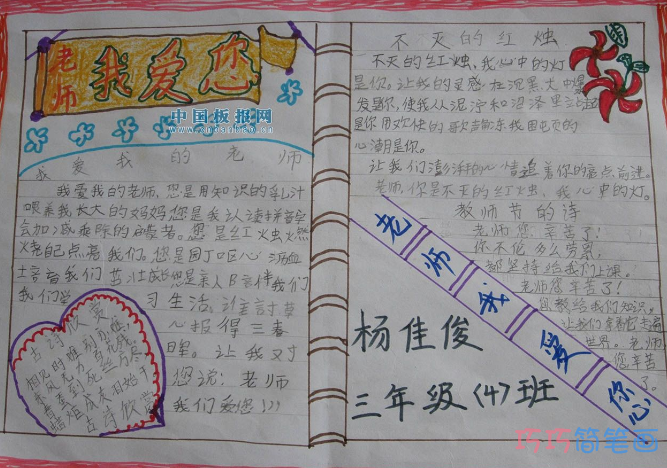 老师
我爱您
中国板报网
我爱我的老师
我爱我的老师,您是用知识的乳汁
喂养我长大的妈妈您是我认读拼音学
会加减乘除的启蒙者。您是红火虫燃
烧自己点亮我们。您是园丁呕心沥血
培育我们茁壮成长您是亲人日夜伴我们
我们学习生活,谁讨草
心报得三春
晖。让我又寸
您说:老师
我们爱您!!!
古诗欣赏
相见时难别亦难
东风无力百花残
春蚕到死丝方尽
古诗欣赏
不灭的红烛
不灭的红烛,我心中的灯
是你。让我的灵感在沉黑大中
发是你,使我从泥泞和沼泽里
是你用欢快的歌声
心湖是你。
让我们澎湃的心情追着你的音点前进。
老师,你是不灭的红火虫、我心中的灯。
教师节的诗
老师您,辛苦了!
你不伦多么劳累,
都坚持给我们上课。
老师您辛苦了!
您教给我们知识。
让我们
世界。老师
您辛苦
了。
老师我爱你心
杨佳俊
三年级〈4〉班
巧巧简笔画